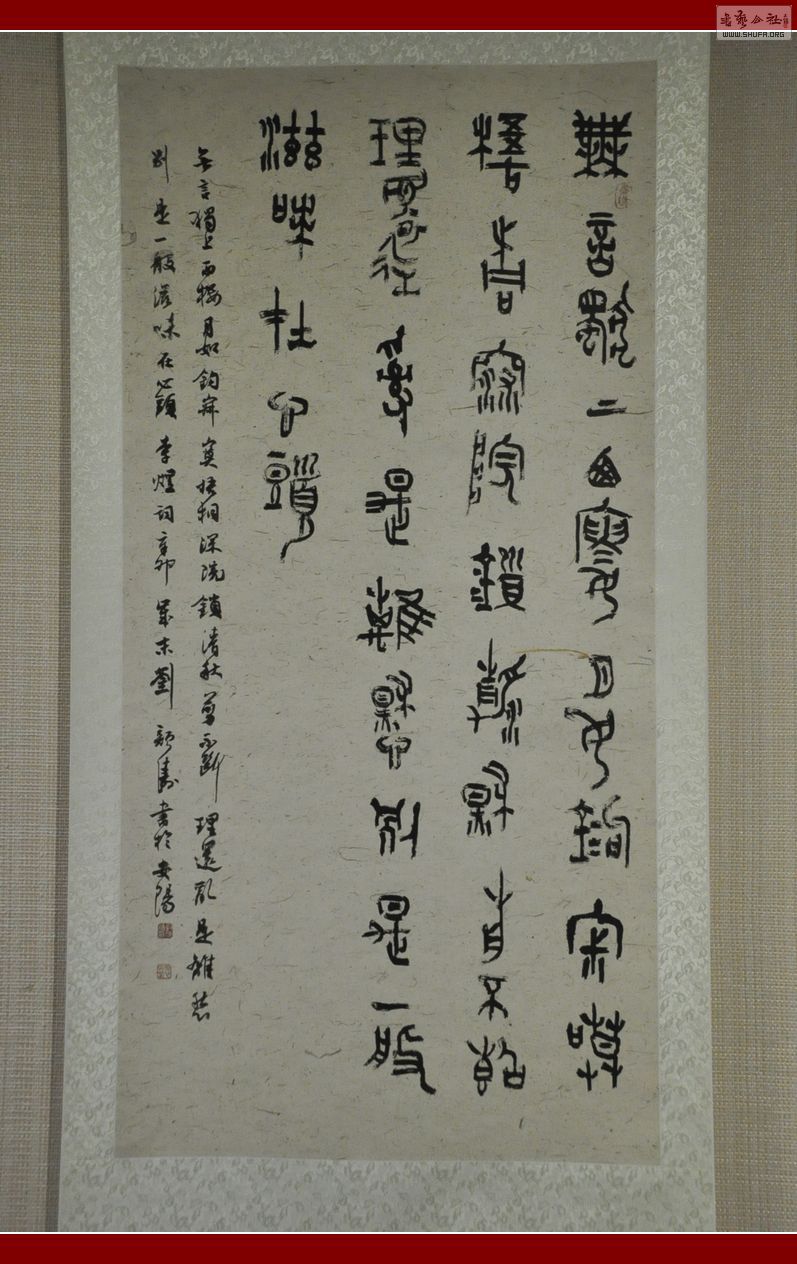 無言獨上西樓月如鉤寂寞
梧桐深院鎖清秋剪不斷
理還亂是離愁別是一般
滋味在心頭
無言獨上西樓月如鉤寂寞梧桐深院鎖清秋剪不斷理還亂是離愁
別是一般滋味在心頭李煜詞辛卯歲末劉顏濤書於安陽
書藝公社
WWW.SHUFA.ORG